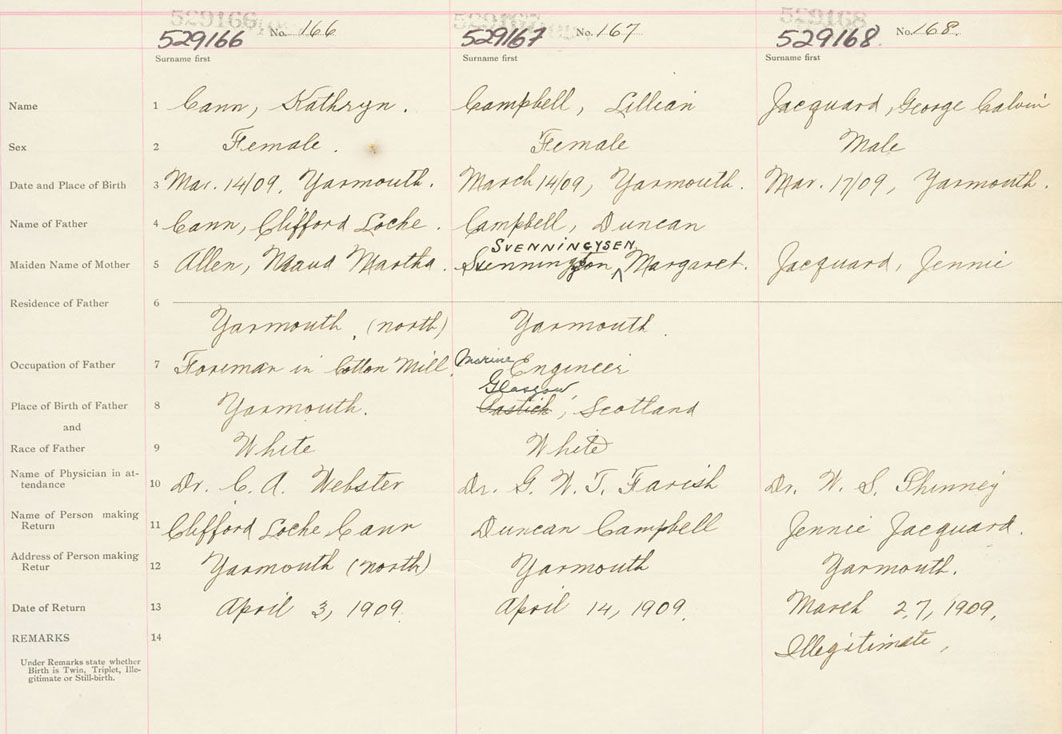 529166 529167 529168
529166 No. 166 529167 No. 167 529168. No. 168.
Surname first Surname first Surname first
Name 1 Cann, Kathryn. Campbell, Lillian Jacquard, George Calvin
Sex 2 Female. Female Male
Date and Place of Birth 3 Mar. 14/09, Yarmouth. March 14/09, Yarmouth. Mar. 17/09, Yarmouth.
Name of Father 4 Cann, Clifford Locke. Campbell, Duncan
SVENNINGYSEN
Maiden Name of Mother 5 Allen, Maud Martha. Svenningson Margaret. Jacquard, Jennie
Residence of Father 6
Yarmouth, (north) Yarmouth.
Occupation of Father 7 Foreman in Cotton Mill. Marine Engineer
Glasgow
Place of Birth of Father 8 Yarmouth. , Scotland
and
Race of Father 9 White White
Name of Physician in at-
tendance 10 Dr. C. A. Webster Dr. G. W. T. Farish Dr. W. S. Phinney
Name of Person making
Return 11 Clifford Locke Cann Duncan Campbell Jennie Jacquard.
Address of Person making
Retur 12 Yarmouth (north) Yarmouth Yarmouth.
Date of Return 13 April 3, 1909. April 14, 1909. March 27, 1909.
REMARKS 14 Illegitimate,
Under Remarks state whether
Birth is Twin, Triplet, Ille-
gitimate or Still-birth.